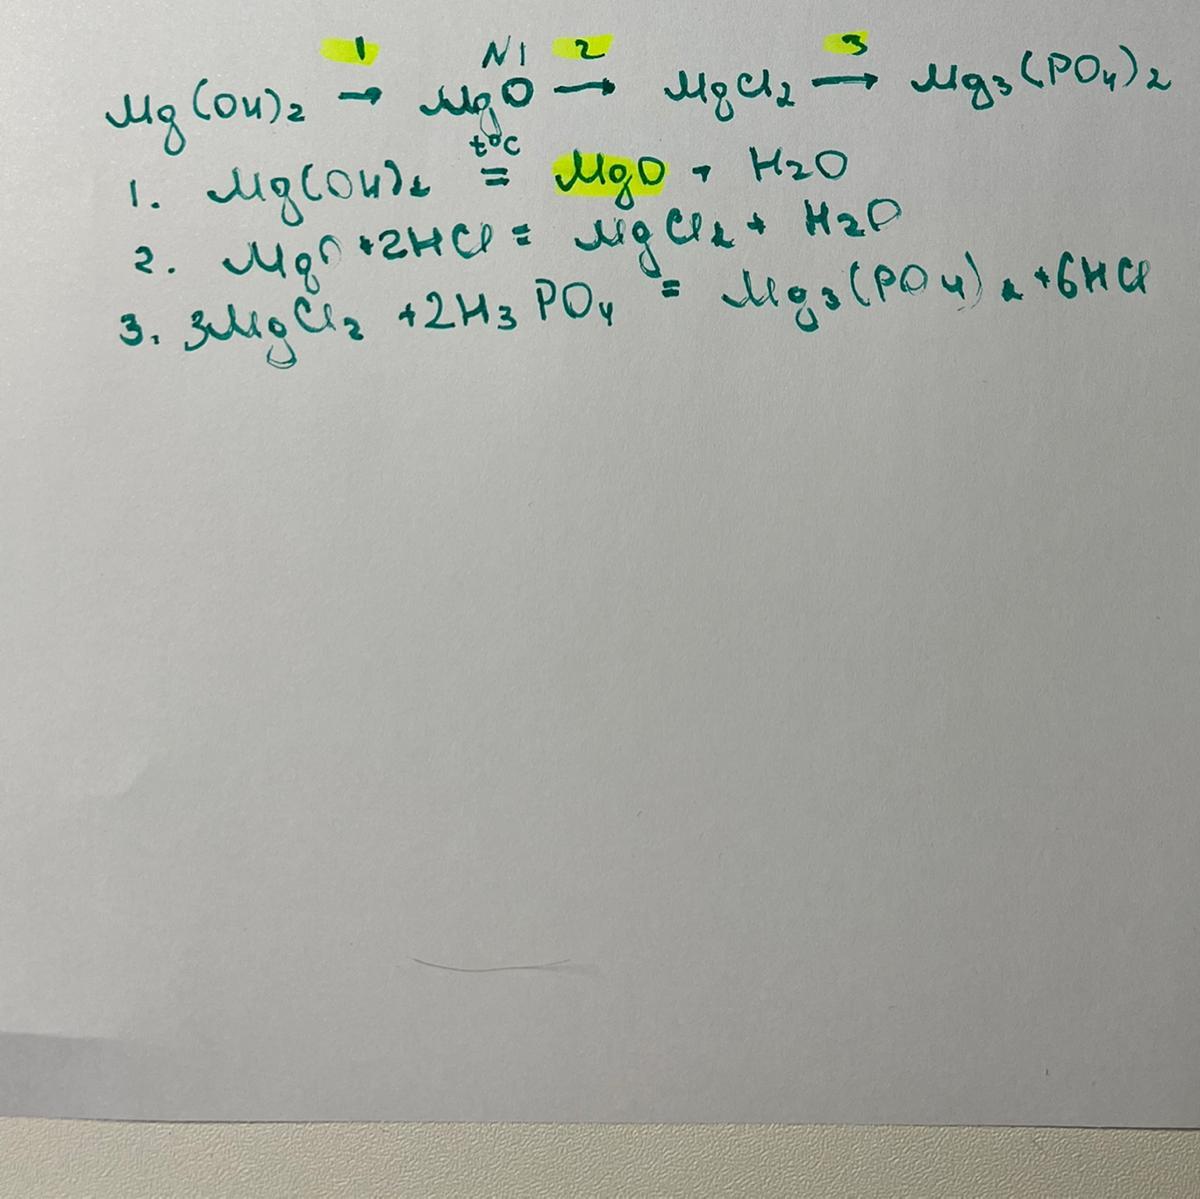 1 N1 2 3
Mg(OH)2 → MgO → MgCl2 → Mg3(PO4)2
t°C
1. Mg(OH)2 = MgO + H2O
2. MgO +2HCl = MgCl2 + H2O
3. 3MgCl2 +2H3PO4 = Mg3(PO4)2 +6HCl